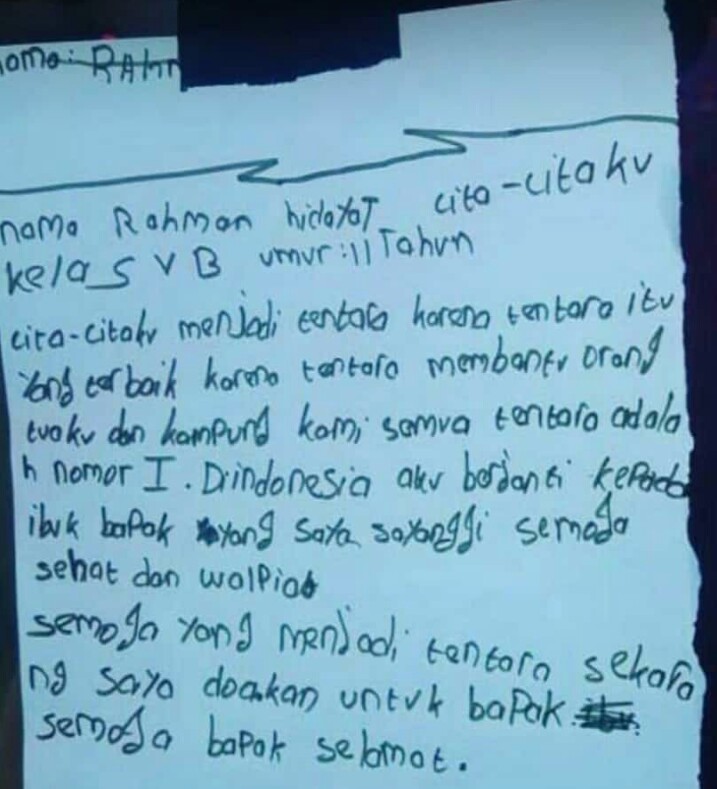 nama: RAHM
nama Rahman hidayaT cita-citaku
kelas V B umur: 11 Tahun
cita-citaku menjadi tentara karena tentara itu
yang terbaik karena tentara membantu orang
tuaku dan kampung kami semua tentara adala
h nomor I. Diindonesia aku berjanti kepada
ibuk bapak yang saya sayanggi semoga
sehat dan walpiat
semoga yang menjadi tentara sekara
ng saya doakan untuk bapak
semoga bapak selamat.